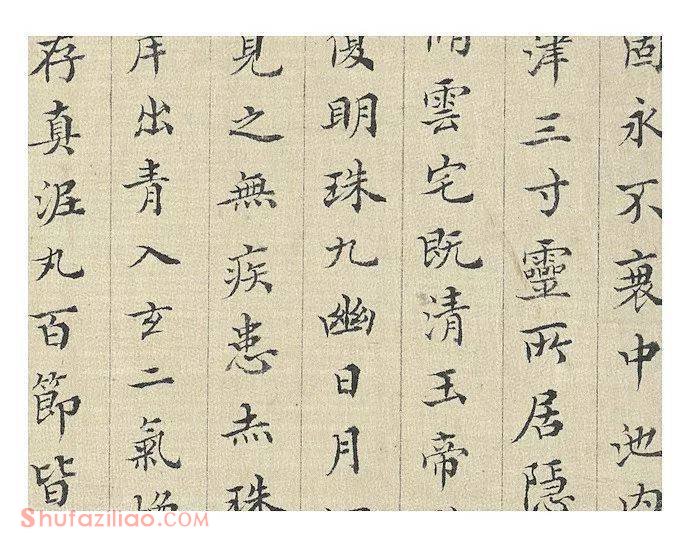 固永不衰中池内
津三寸靈所居隱
脩雲宅既清玉帝
覆明珠九幽日月
見之無疾患赤珠
岸出青入玄二氣煥
存真泥丸百節皆
Shufaziliao.COM